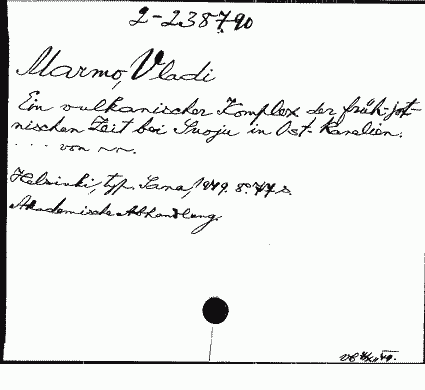 2-238790
Marmo, Vladi
Ein vulkanischer Komplex der früh-jot-
nischen Zeit bei Suoju in Ost-Karelien.
... von nn.
Helsinki, typ. Sana, 1949. 8°. 77 s.
Akademische Abhandlung.